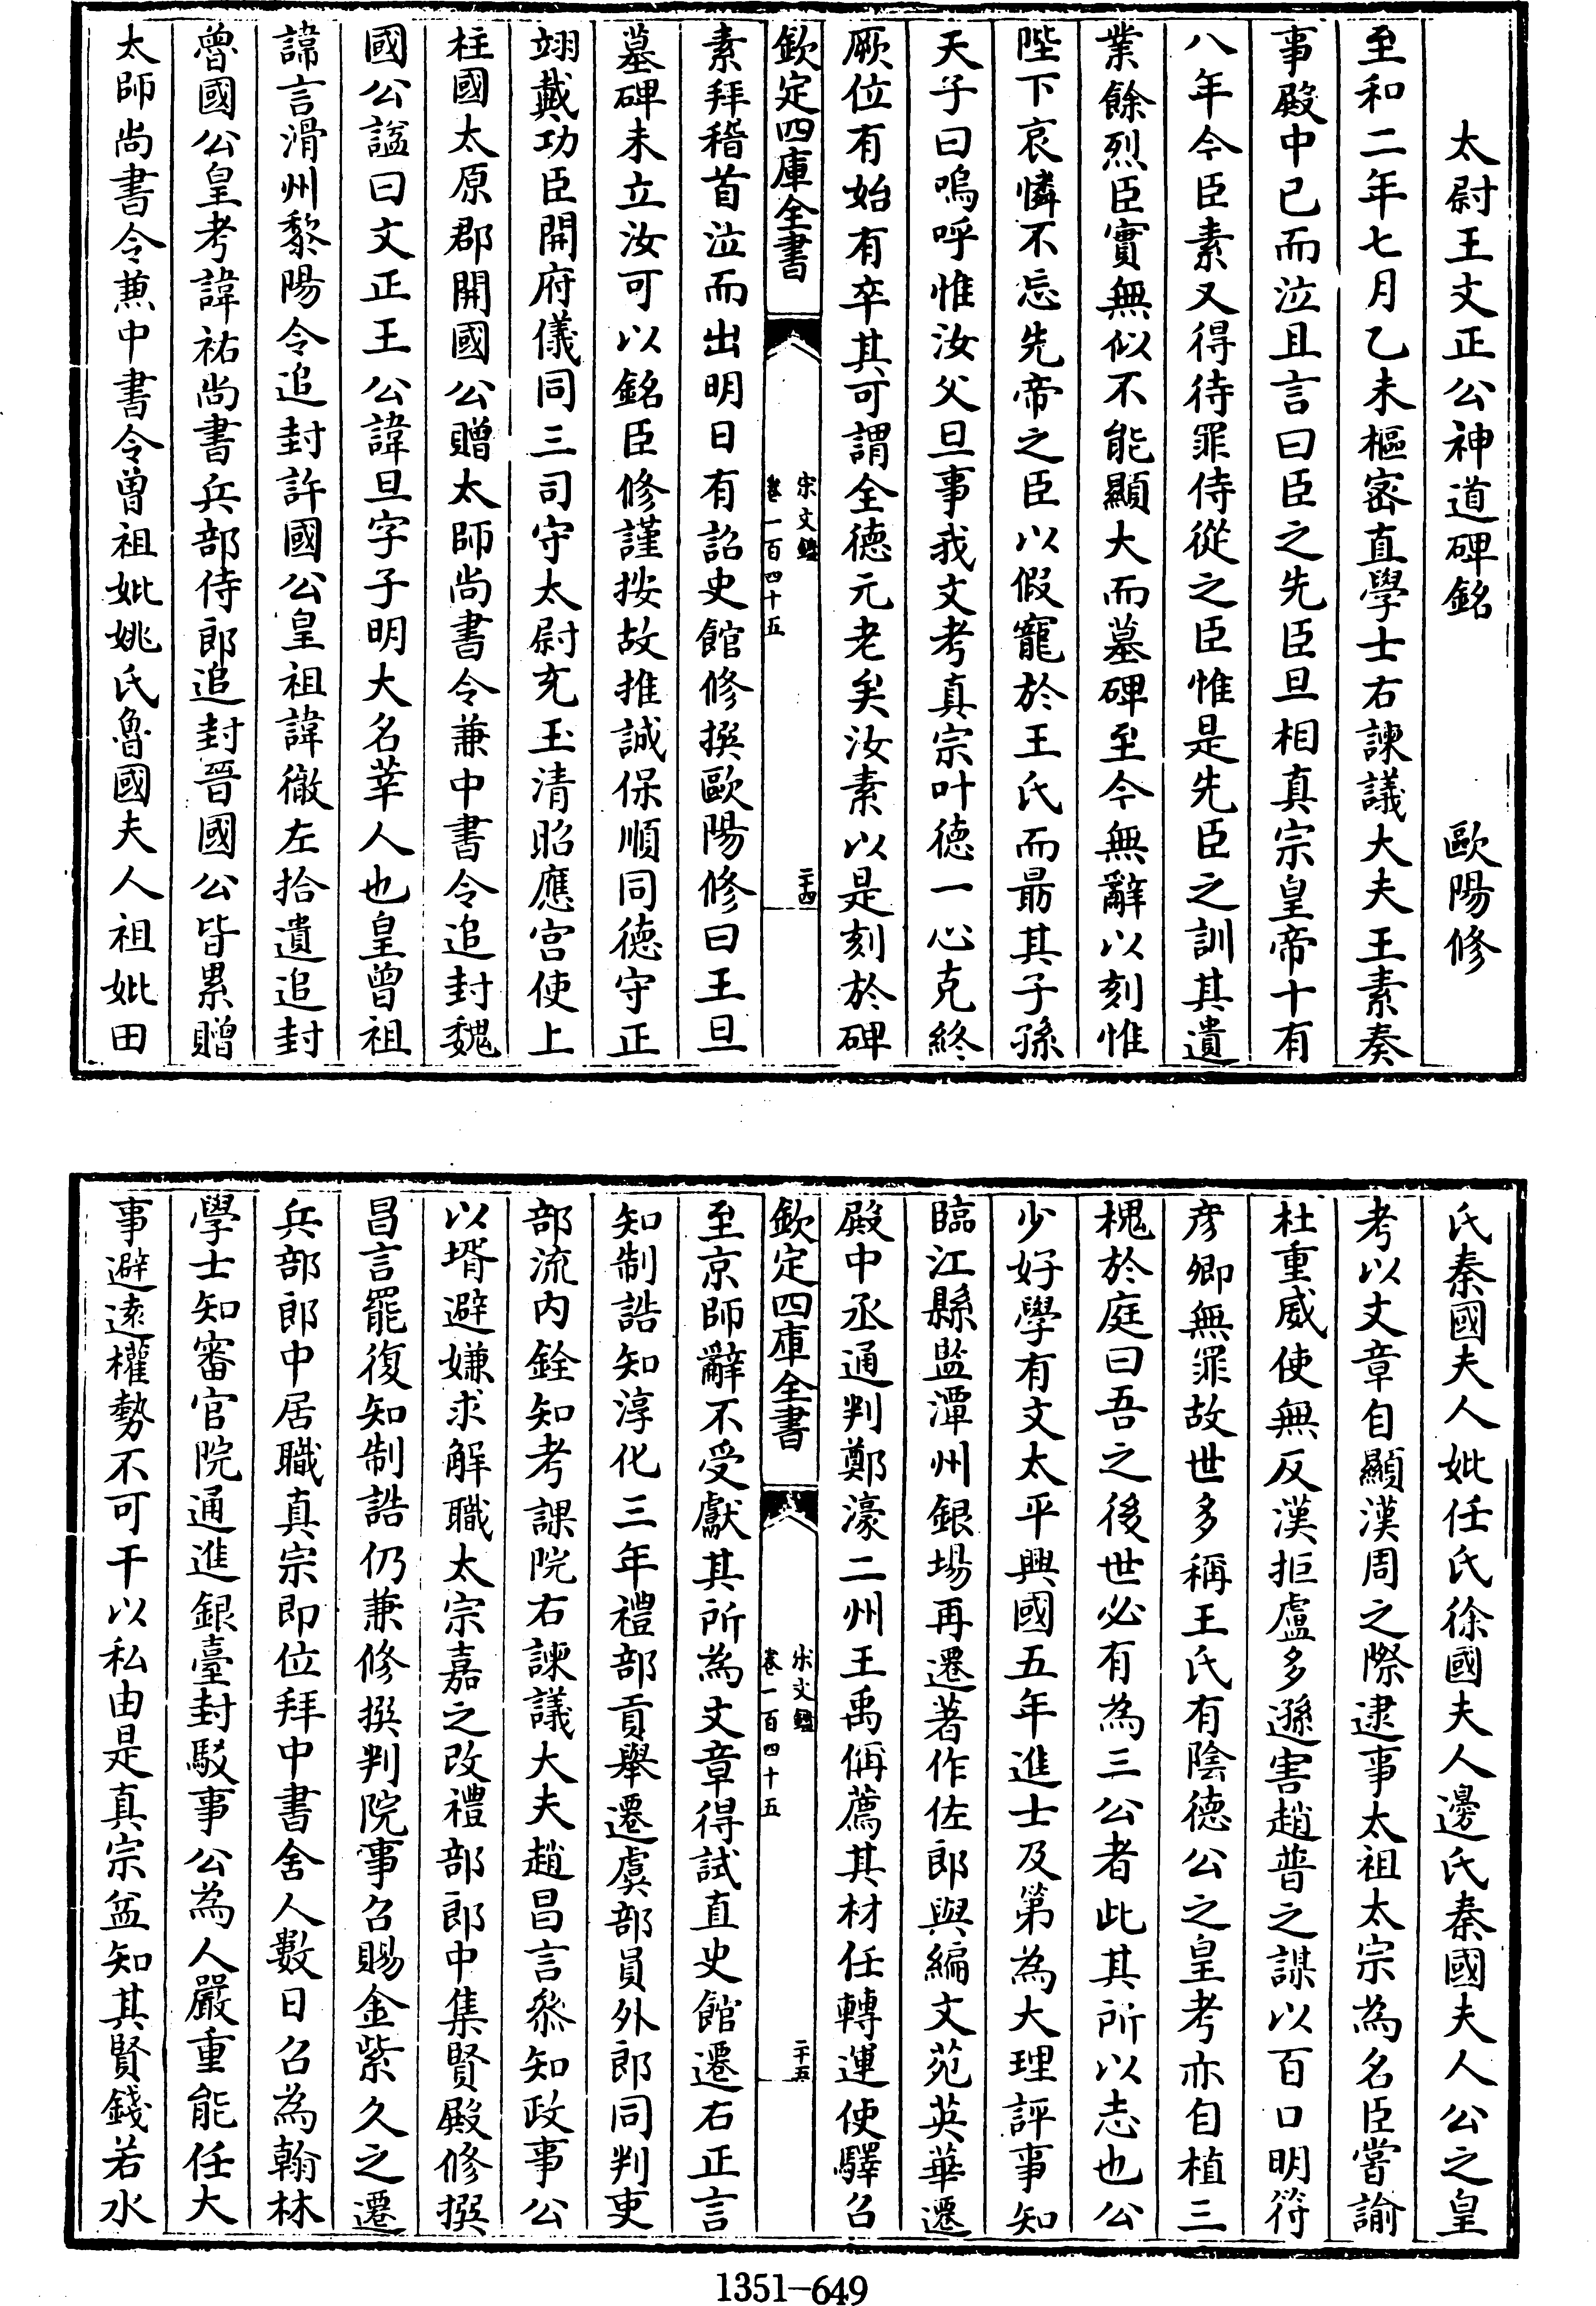 太尉王文正公神道碑銘　歐陽修
至和二年七月乙未樞密直學士右諫議大夫王素奏
事殿中已而泣且言曰臣之先臣旦相真宗皇帝十有
八年今臣素又得待罪侍從之臣惟是先臣之訓其遺
業餘烈臣實無似不能顯大而墓碑至今無辭以刻惟
陛下哀憐不忘先帝之臣以假寵於王氏而朂其子孫
天子曰嗚呼惟汝父旦事我文考真宗叶徳一心克終
厥位有始有卒其可謂全徳元老矣汝素以是刻於碑
欽定四庫全書
宋文鑑
卷一百四十五
二十四
素拜稽首泣而出明日有詔史館修撰歐陽修曰王旦
墓碑未立汝可以銘臣修謹按故推誠保順同徳守正
翊戴功臣開府儀同三司守太尉充玉清昭應宫使上
柱國太原郡開國公贈太師尚書令兼中書令追封魏
國公諡曰文正王公諱旦字子明大名莘人也皇曾祖
諱言滑州黎陽令追封許國公皇祖諱徹左拾遺追封
魯國公皇考諱祐尚書兵部侍郎追封晉國公皆累贈
太師尚書令兼中書令曾祖妣姚氏魯國夫人祖妣田
氏秦國夫人妣任氏徐國夫人邊氏秦國夫人公之皇
考以文章自顯漢周之際逮事太祖太宗為名臣嘗諭
杜重威使無反漢拒盧多遜害趙普之謀以百口明符
彦卿無罪故世多稱王氏有陰徳公之皇考亦自植三
槐於庭曰吾之後世必有為三公者此其所以志也公
少好學有文太平興國五年進士及第為大理評事知
臨江縣監潭州銀場再遷著作佐郎與編文苑英華遷
殿中丞通判鄭濠二州王禹偁薦其材任轉運使驛召
欽定四庫全書
宋文鑑
卷一百四十五
二十五
至京師辭不受獻其所為文章得試直史館遷右正言
知制誥知淳化三年禮部貢舉遷虞部員外郎同判吏
部流内銓知考課院右諫議大夫趙昌言參知政事公
以壻避嫌求解職太宗嘉之改禮部郎中集賢殿修撰
昌言罷復知制誥仍兼修撰判院事召賜金紫久之遷
兵部郎中居職真宗即位拜中書舍人數日召為翰林
學士知審官院通進銀臺封駁事公為人嚴重能任大
事避逺權勢不可干以私由是真宗益知其賢錢若水
1351-649